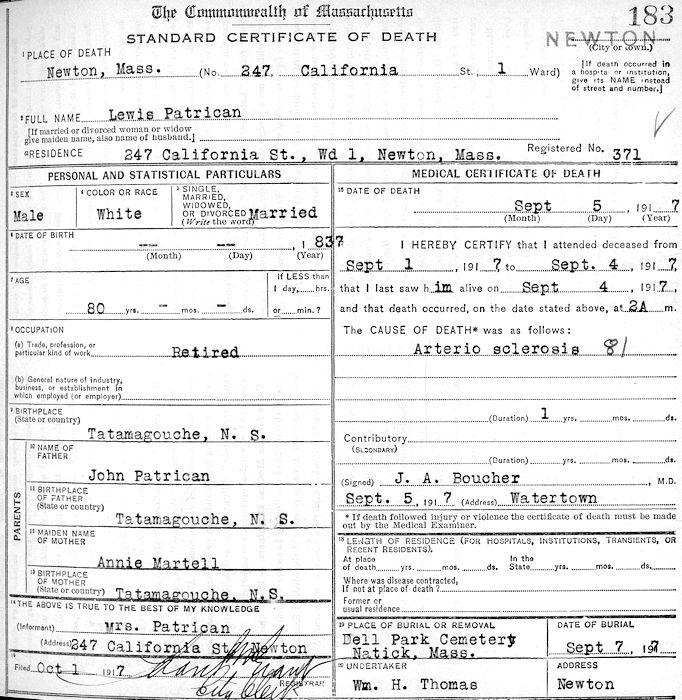 The Commonwealth of Massachusetts
183
STANDARD CERTIFICATE OF DEATH
NEWTON
(City or town.)
1 PLACE OF DEATH
Newton, Mass. (No. 247, California St., 1 Ward)
[If death occurred in
a hospital or institution,
give its NAME instead
of street and number.]
2 FULL NAME Lewis Patrican
[If married or divorced woman or widow
give maiden name, also name of husband.]
RESIDENCE 247 California St., Wd 1, Newton, Mass. Registered No. 371
PERSONAL AND STATISTICAL PARTICULARS
3 SEX
Male
4 COLOR OR RACE
White
5 SINGLE,
MARRIED,
WIDOWED,
OR DIVORCED Married
(Write the word)
6 DATE OF BIRTH
--- --- , 1837
(Month) (Day) (Year)
7 AGE
80 yrs. - mos. - ds.
If LESS than
1 day, hrs.
or min.?
8 OCCUPATION
(a) Trade, profession, or
particular kind of work Retired
(b) General nature of industry,
business, or establishment in
which employed (or employer)
9 BIRTHPLACE
(State or country)
Tatamagouche, N. S.
PARENTS
10 NAME OF
FATHER
John Patrican
11 BIRTHPLACE
OF FATHER
(State or country)
Tatamagouche, N. S.
12 MAIDEN NAME
OF MOTHER
Annie Martell
13 BIRTHPLACE
OF MOTHER
(State or country) Tatamagouche, N.S.
14 THE ABOVE IS TRUE TO THE BEST OF MY KNOWLEDGE
(Informant) Mrs. Patrican
(Address) 247 California St. Newton
15
Filed Oct 1 1917
City Clerk
REGISTRAR
MEDICAL CERTIFICATE OF DEATH
16 DATE OF DEATH
Sept 5, 1917
(Month) (Day) (Year)
I HEREBY CERTIFY that I attended deceased from
Sept 1, 1917 to Sept. 4, 1917,
that I last saw him alive on Sept 4, 1917,
and that death occurred, on the date stated above, at 2A m.
The CAUSE OF DEATH* was as follows:
Arterio sclerosis 81
(Duration) 1 yrs. mos. ds.
Contributory
(SECONDARY)
(Duration) yrs. mos. ds.
(Signed) J. A. Boucher, M.D.
Sept. 5, 1917 (Address) Watertown
* If death followed injury or violence the certificate of death must be made
out by the Medical Examiner.
18 LENGTH OF RESIDENCE (FOR HOSPITALS, INSTITUTIONS, TRANSIENTS, OR
RECENT RESIDENTS).
At place
of death yrs. mos. ds.
In the
State yrs. mos. ds.
Where was disease contracted,
If not at place of death?
Former or
usual residence
19 PLACE OF BURIAL OR REMOVAL
Dell Park Cemetery
Natick, Mass.
DATE OF BURIAL
Sept 7, 1917
20 UNDERTAKER
Wm. H. Thomas
ADDRESS
Newton